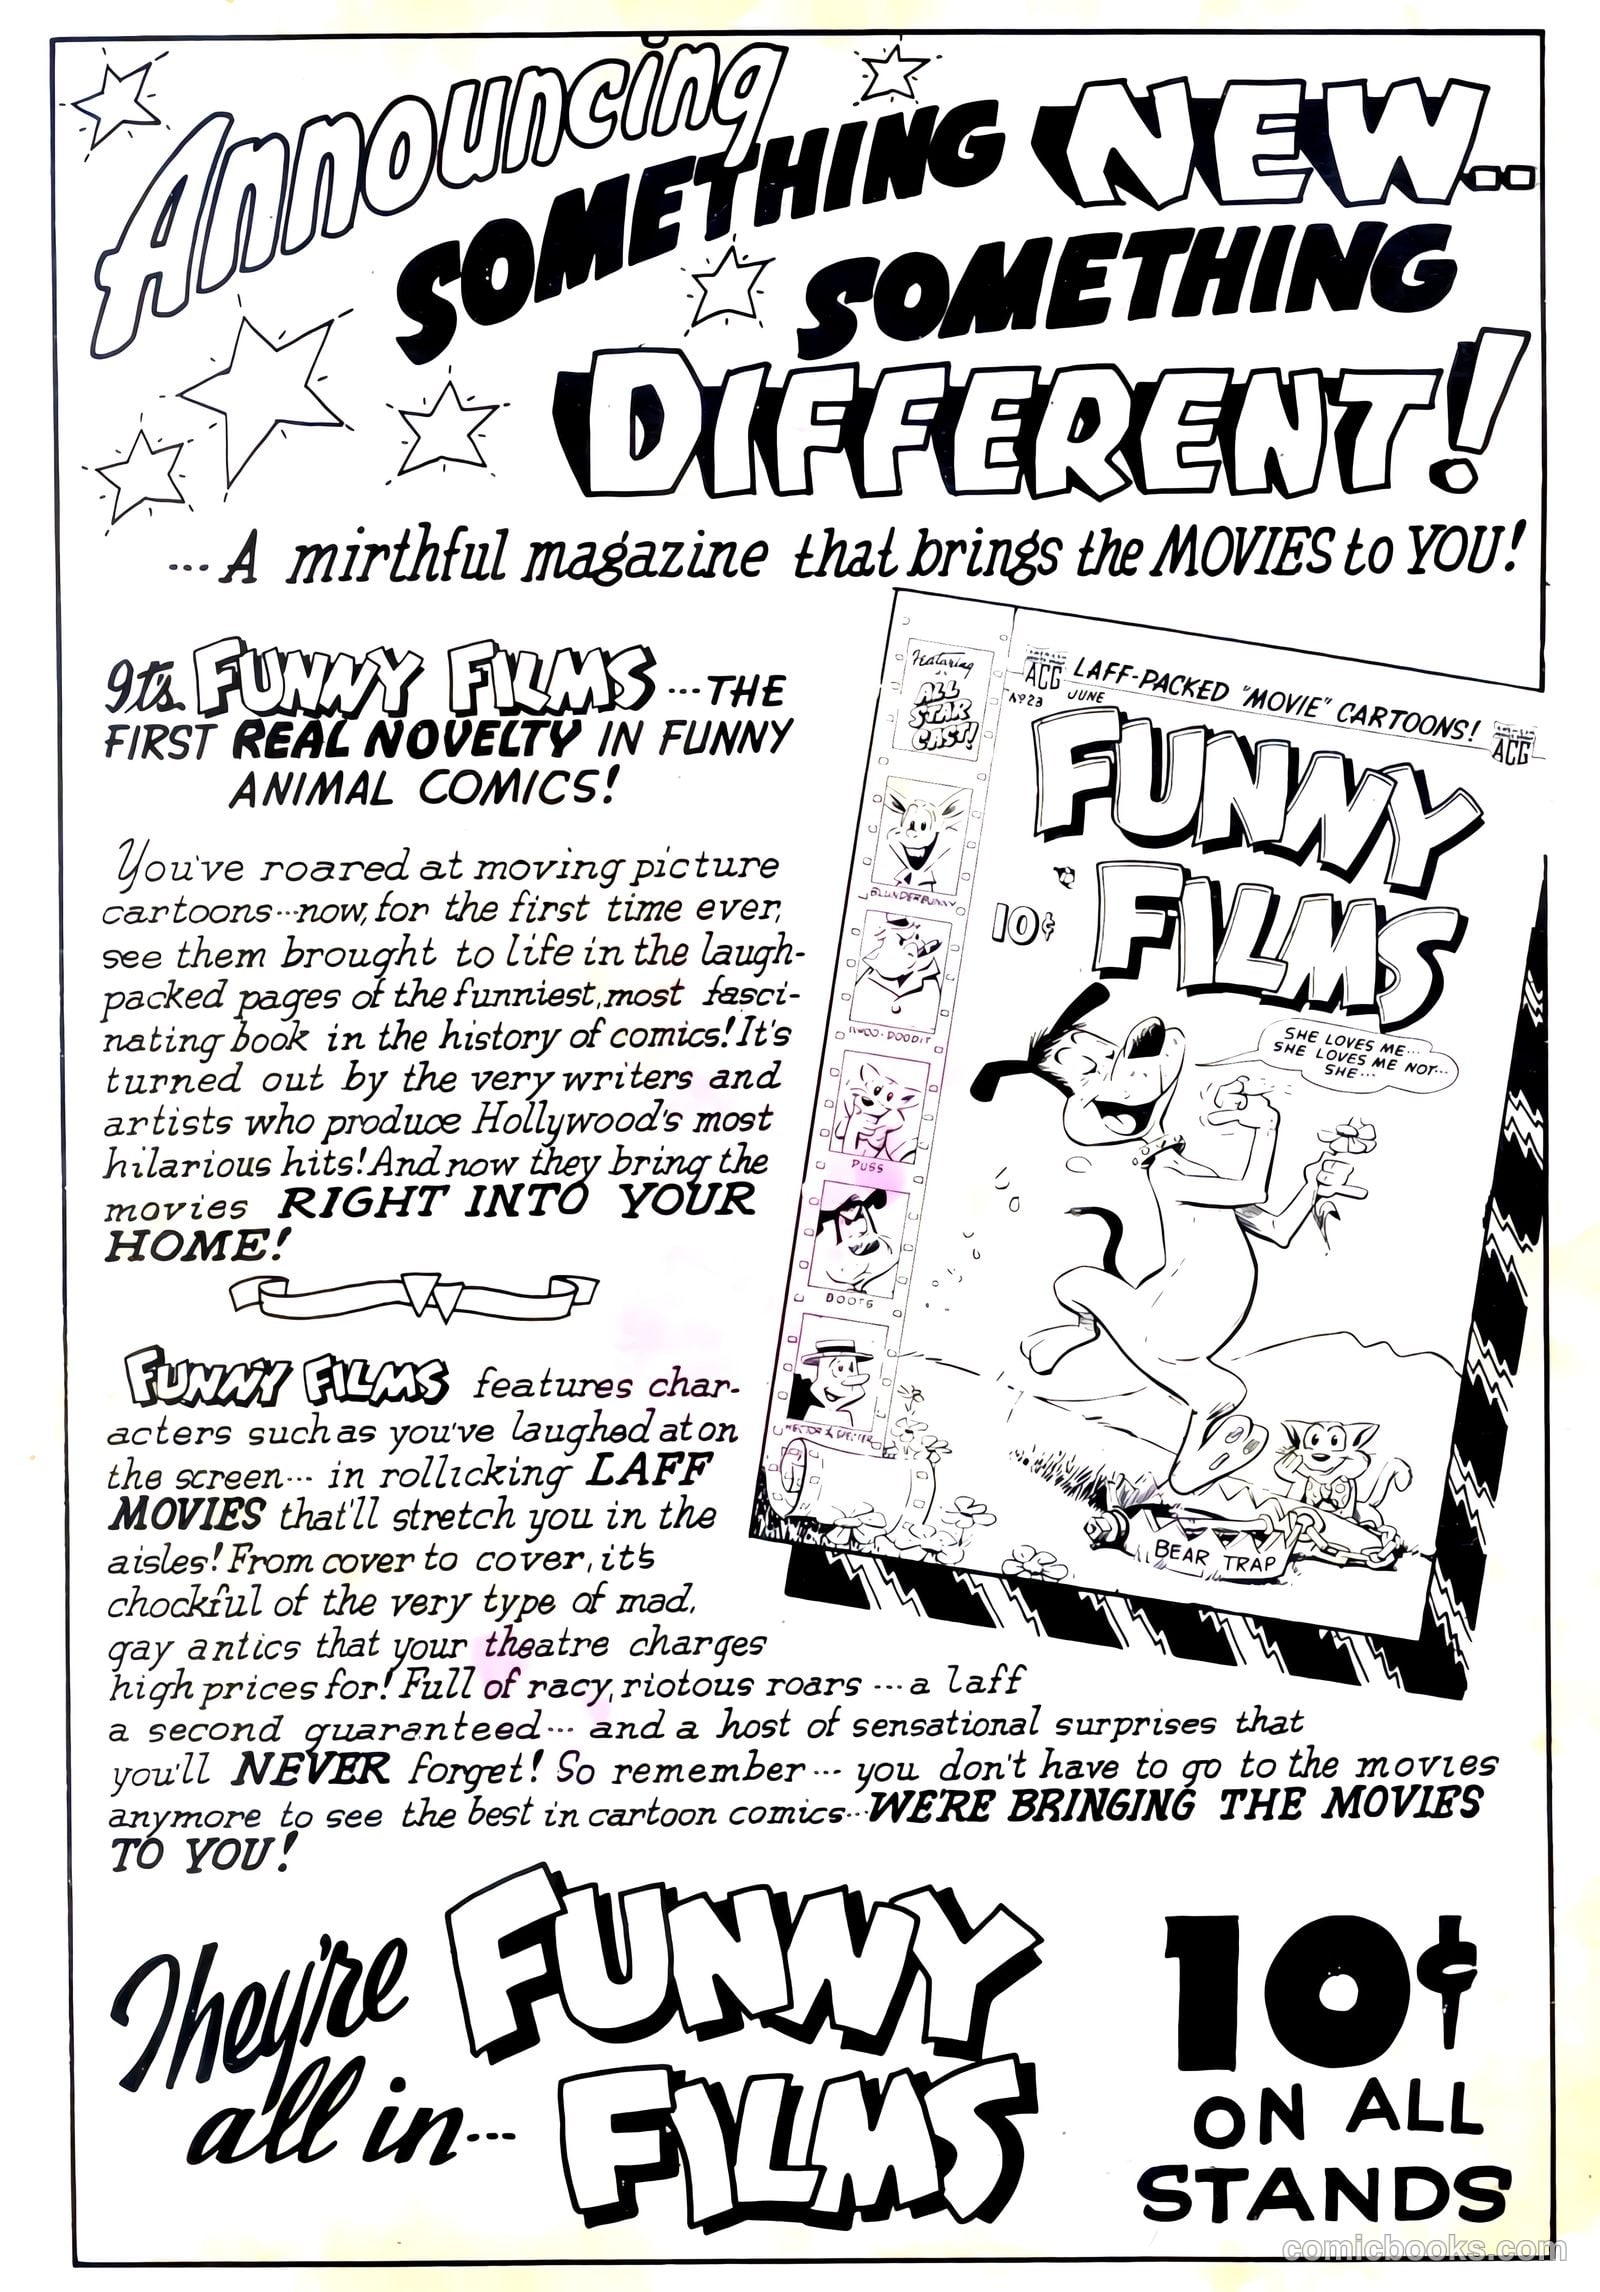 Announcing
SOMETHING NEW..
SOMETHING
DIFFERENT!
...A mirthful magazine that brings the MOVIES to YOU!
It's FUNNY FILMS ...THE
FIRST REAL NOVELTY IN FUNNY
ANIMAL COMICS!
You've roared at moving picture
cartoons...now, for the first time ever,
see them brought to life in the laugh-
packed pages of the funniest, most fasci-
nating book in the history of comics! It's
turned out by the very writers and
artists who produce Hollywood's most
hilarious hits! And now they bring the
movies RIGHT INTO YOUR
HOME!
Featuring
ALL
STAR
CAST!
BLUNDERBUNNY
PUSS
BOOTS
ACG LAFF-PACKED "MOVIE" CARTOONS! ACG
Nº23 JUNE
FUNNY
FILMS
10¢
SHE LOVES ME...
SHE LOVES ME NOT...
SHE...
BEAR TRAP
FUNNY FILMS features char-
acters such as you've laughed at on
the screen... in rollicking LAFF
MOVIES that'll stretch you in the
aisles! From cover to cover, it's
chockful of the very type of mad,
gay antics that your theatre charges
high prices for! Full of racy, riotous roars ... a laff
a second guaranteed... and a host of sensational surprises that
you'll NEVER forget! So remember... you don't have to go to the movies
anymore to see the best in cartoon comics...WE'RE BRINGING THE MOVIES
TO YOU!
They're
all in...
FUNNY
FILMS
10¢
ON ALL
STANDS
comicbooks.com